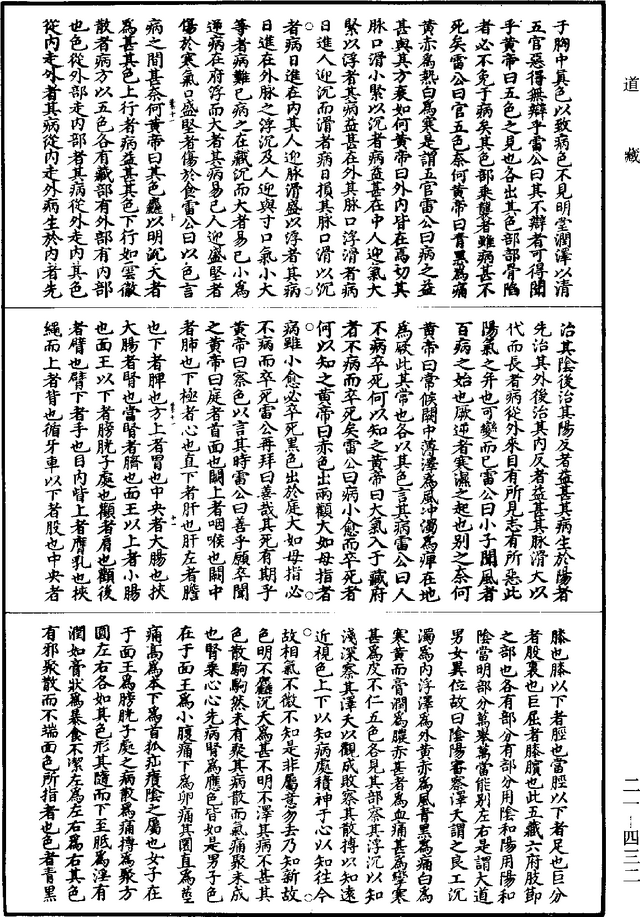 道藏
于胸中真色以致病色不見明堂潤澤以清
五官惡得無辯乎雷公曰其不辯者可得聞
乎黃帝曰五色之見也各出其色部部骨陷
者必不免于病矣其色部乘襲者雖病甚不
死矣雷公曰官五色奈何黃帝曰青黑為痛
黃赤為熱白為寒是謂五官雷公曰病之益
甚與其方衰如何黃帝曰外內皆在焉切其
脉口滑小緊以沉者病益甚在中人迎氣大
緊以浮者其病益甚在外其脉口浮滑者病
日進人迎沉而滑者病日損其脉口滑以沉
者病日進在內其人迎脉滑盛以浮者其病
日進在外脉之浮沉及人迎與寸口氣小大
等者病難已病之在藏沉而大者易已小為
逆病在府浮而大者其病易已人迎盛堅者
傷於寒氣口盛堅者傷於食雷公曰以色言
病之間甚奈何黃帝曰其色麤以明沉夭者
為甚其色上行者病益甚其色下行如雲徹
散者病方以五色各有藏部有外部有內部
也色從外部走內部者其病從外走內其色
從內走外者其病從內走外病生於內者先
治其陰後治其陽反者益甚其病生於陽者
先治其外後治其內反者益甚其脉滑大以
代而長者病從外來目有所見志有所惡此
陽氣之并也可變而已雷公曰小子聞風者
百病之始也厥逆者寒濕之起也別之奈何
黃帝曰常候闕中薄澤為風冲濁為痺在地
為厥此其常也各以其色言其病雷公曰人
不病卒死何以知之黃帝曰大氣入于藏府
者不病而卒死矣雷公曰病小愈而卒死者
何以知之黃帝曰赤色出兩顴大如母指者
病雖小愈必卒死黑色出於庭大如母指必
不病而卒死雷公再拜曰善哉其死有期乎
黃帝曰察色以言其時雷公曰善乎願卒聞
之黃帝曰庭者首面也闕上者咽喉也闕中
者肺也下極者心也直下者肝也肝左者膽
也下者脾也方上者胃也中央者大腸也挾
大腸者腎也當腎者臍也面王以上者小腸
也面王以下者膀胱子處也顴者肩也顴後
者臂也臂下者手也目內眥上者膺乳也挾
繩而上者背也循牙車以下者股也中央者
膝也膝以下者脛也當脛以下者足也巨分
者股裏也巨屈者膝臏也此五藏六府肢節
之部也各有部分有部分用陰和陽用陽和
陰當明部分萬舉萬當能別左右是謂大道
男女異位故曰陰陽審察澤夭謂之良工沉
濁為內浮澤為外黃赤為風青黑為痛白為
寒黃而膏潤為膿赤甚者為血痛甚為攣寒
甚為皮不仁五色各見其部察其浮沉以知
淺深察其澤夭以觀成敗察其散摶以知遠
近視色上下以知病處積神于心以知往今
故相氣不微不知是非屬意勿去乃知新故
色明不麤沉夭為甚不明不澤其病不甚其
色散駒駒然未有聚其病散而氣痛聚未成
也腎乘心心先病腎為應色皆如是男子色
在于面王為小腹痛下為卵痛其圜直為莖
痛高為本下為首狐疝㿉陰之屬也女子在
于面王為膀胱子處之病散為痛摶為聚方
圓左右各如其色形其隨而下至胝為淫有
潤如膏狀為暴食不潔左為左右為右其色
有邪聚散而不端面色所指者也色者青黑
二一－四三二